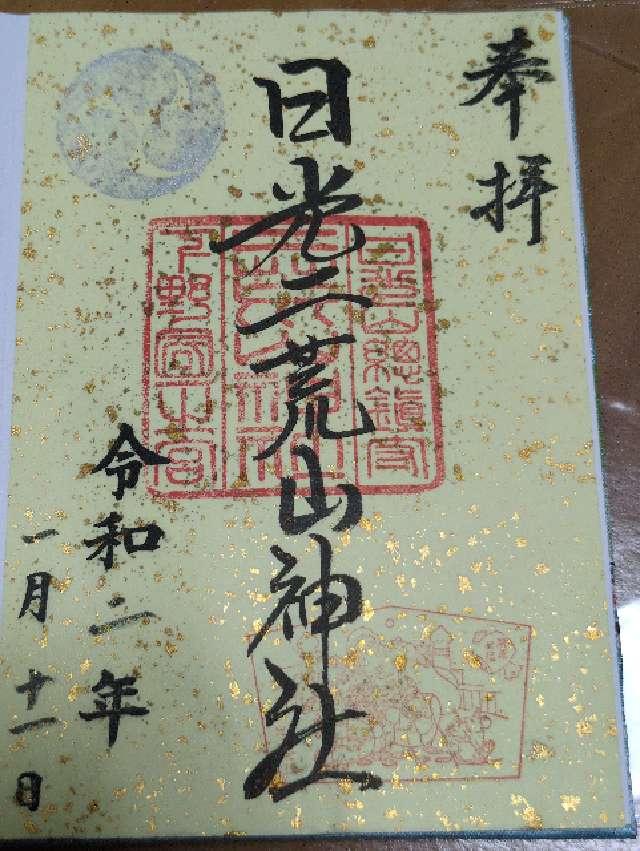 奉拝
日光山総鎮守
下野国一之宮
日光二荒山神社
令和二年
一月十一日